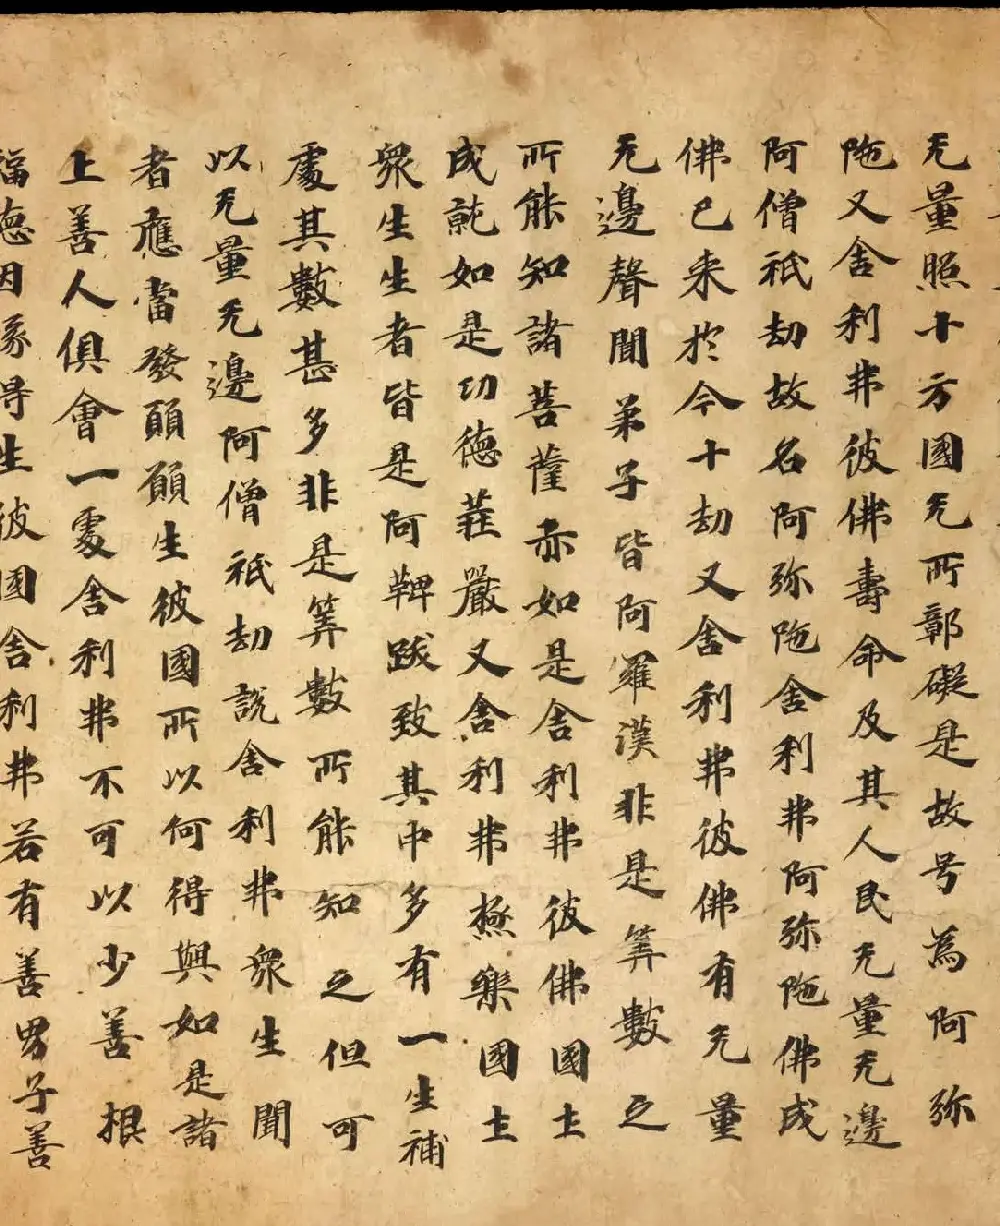 无量照十方國无所鄣礙是故号為阿弥
陁又舍利弗彼佛壽命及其人民无量无邊
阿僧祇劫故名阿弥陁舍利弗阿弥陁佛成
佛已来於今十劫又舍利弗彼佛有无量
无邊聲聞弟子皆阿羅漢非是筭數之
所能知諸菩薩亦如是舍利弗彼佛國土
成就如是功德莊嚴又舍利弗極樂國土
衆生生者皆是阿鞞跋致其中多有一生補
處其數甚多非是筭數所能知之但可
以无量无邊阿僧祇劫說舍利弗衆生聞
者應當發願願生彼國所以何得與如是諸
上善人俱會一處舍利弗不可以少善根
福德因緣得生彼國舍利弗若有善男子善